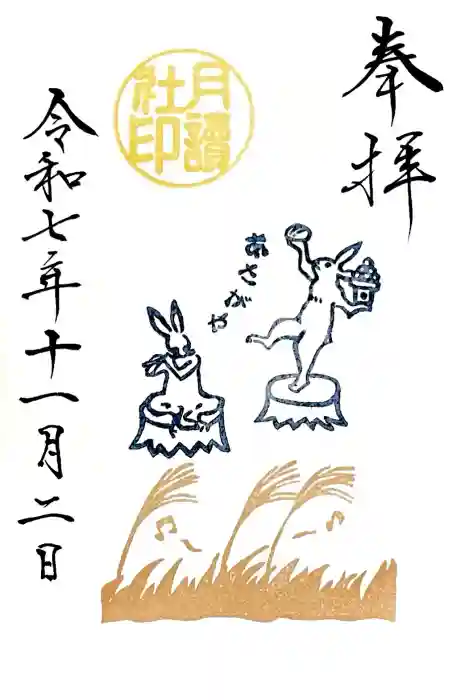 奉拝
月讀社印
あさがや
令和七年十一月二日